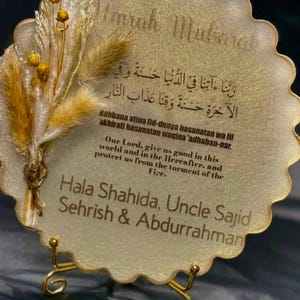 Umrah Mubarak
ربنا ءاتنا في الدنيا حسنة وفي
الآخرة حسنة وقنا عذاب النار
Rabbana atina fid-dunya hasanatan wa fil
akhirati hasanatan waqina 'adhaban-nar.
Our Lord, give us good in this
world and in the Hereafter, and
protect us from the torment of the
Fire.
Hala Shahida, Uncle Sajid
Sehrish & Abdurrahman